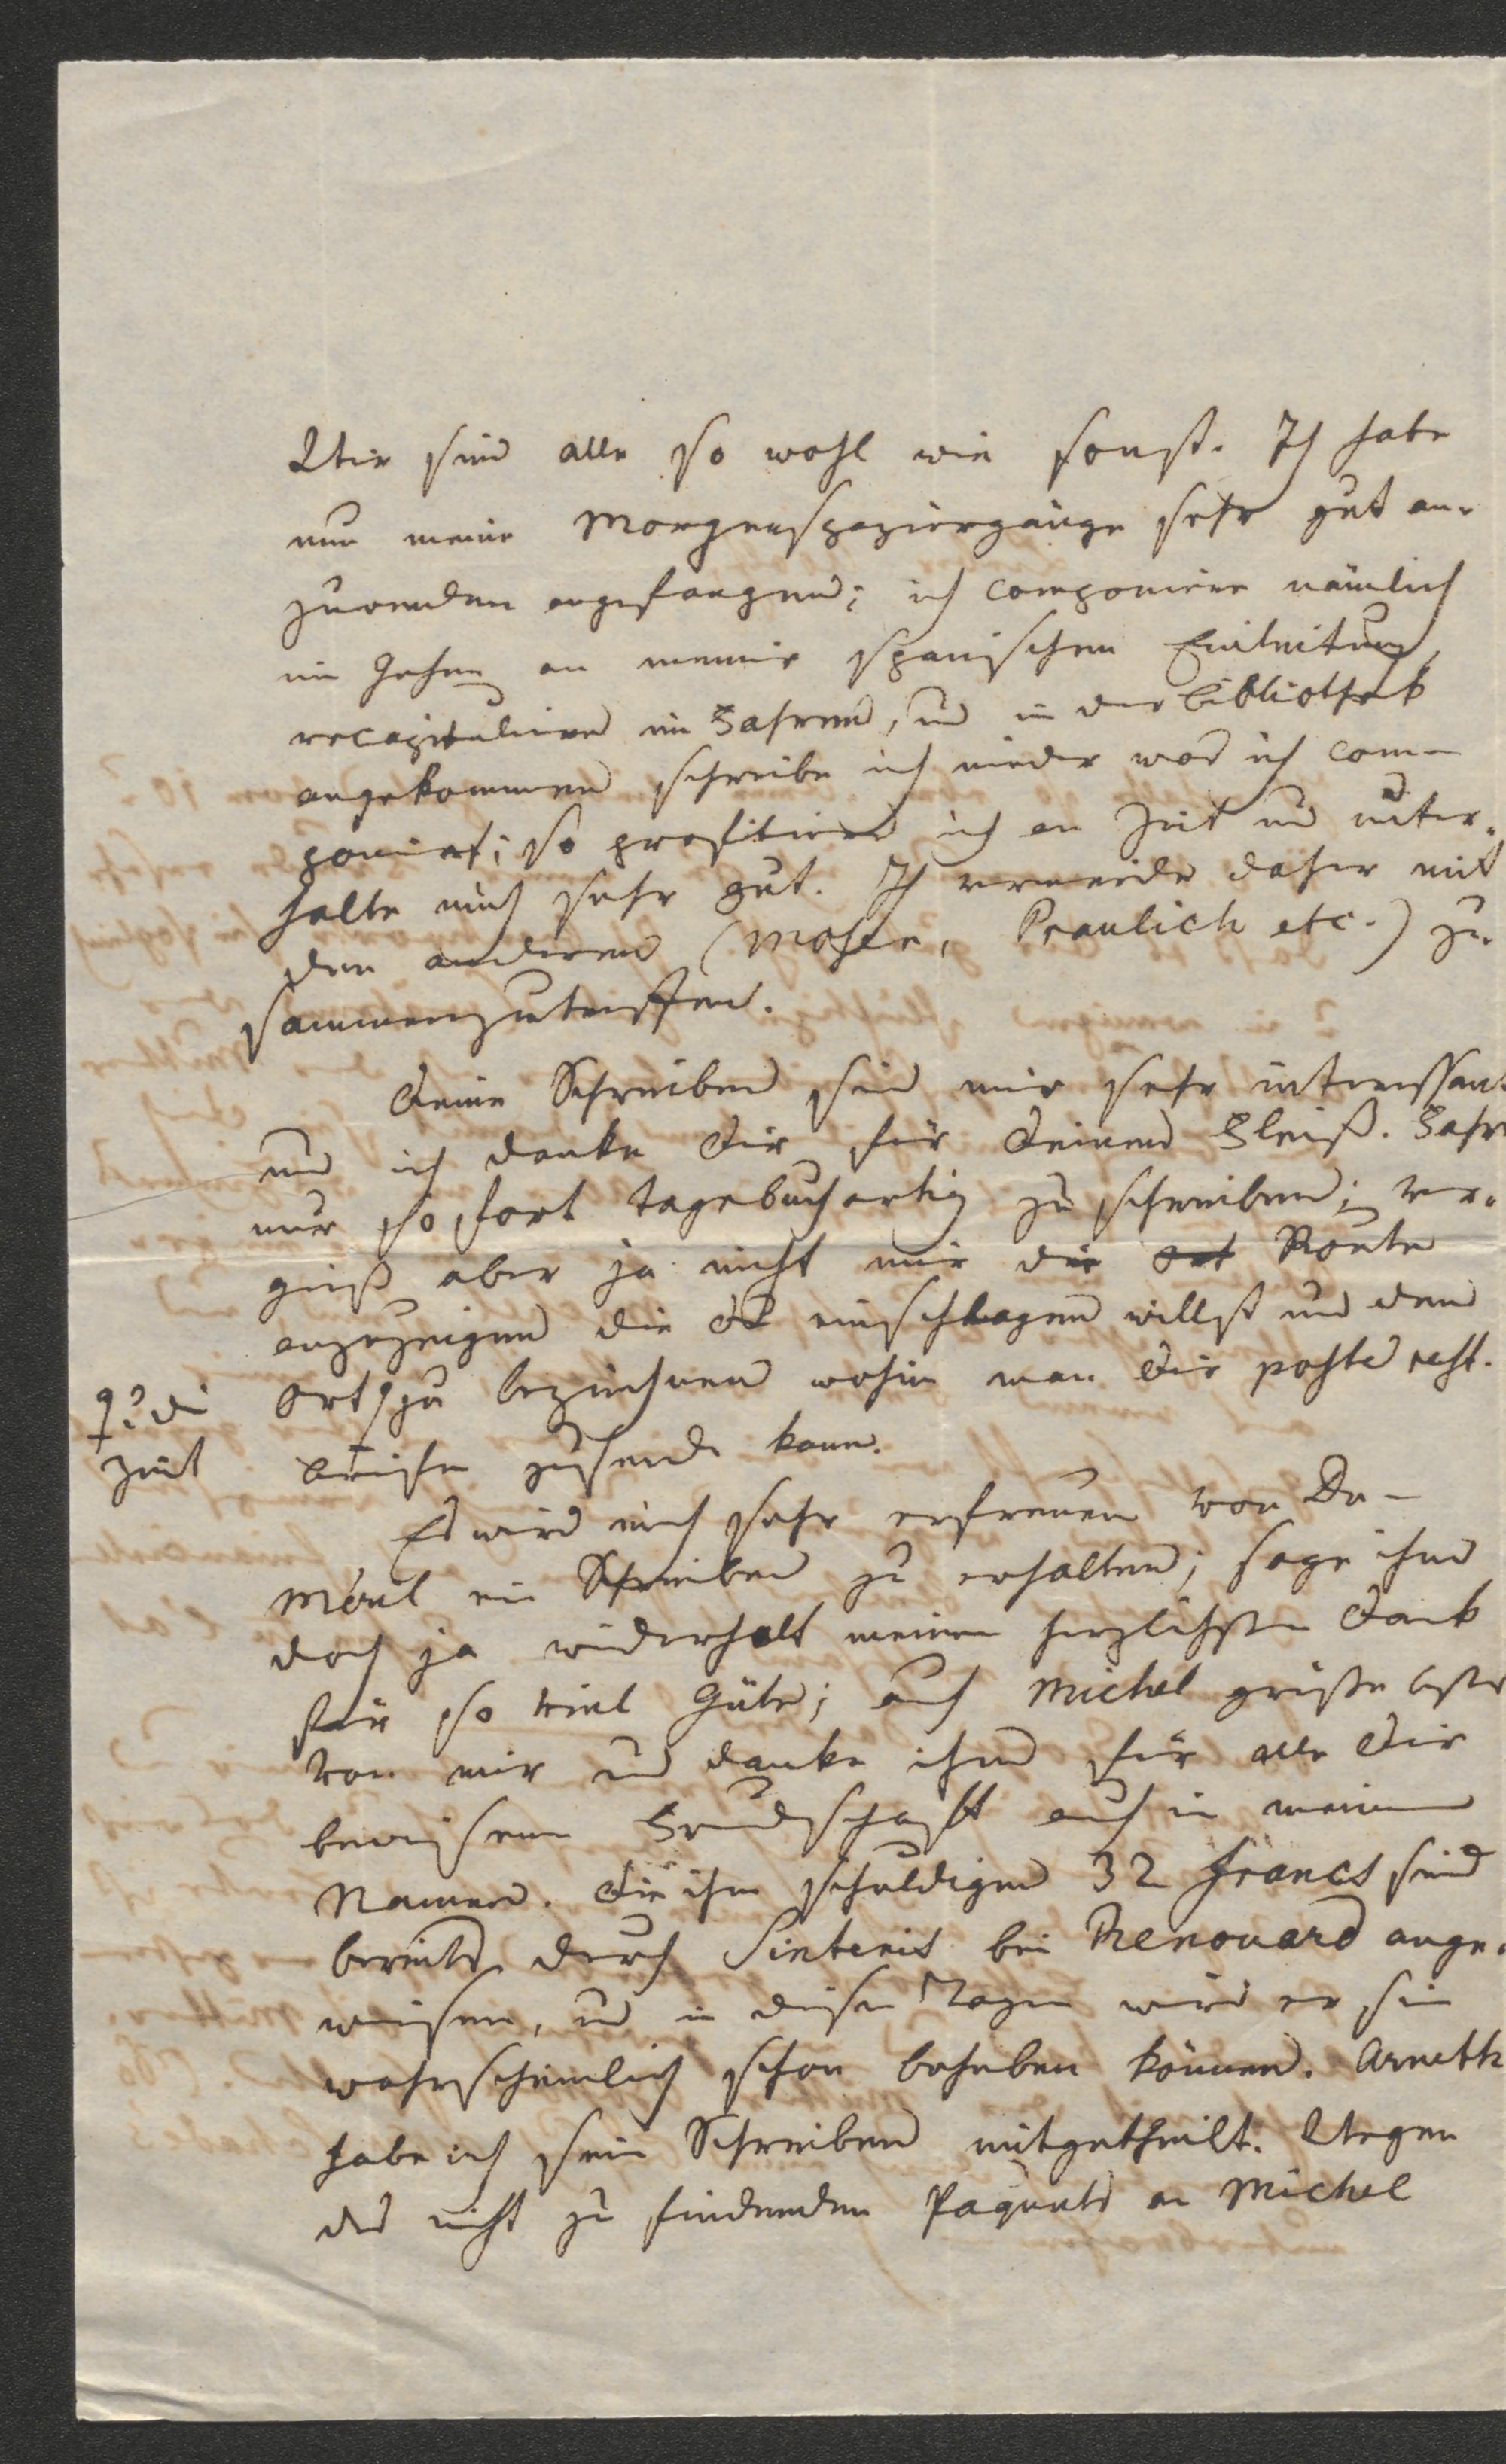 Wir sind alle so wohl wie sonst. Ich habe
nun meine Morgenspaziergänge sehr gut an-
zuwenden angefangen; ich componiere nämlich
im Gehen an meiner spanischen Einleitung,
recapituliere im Fahren, und in der Bibliothek
angekommen schreibe ich nieder was ich com-
poniert; so profitiere ich an Zeit und unter-
halte mich sehr gut. Ich vermeide daher mit
den anderen (Moser, Praulich etc.) zu-
sammenzutreffen.
Deine Schreiben sind mir sehr interessant
und ich danke Dir für Deinen Fleiß. Fahre
nur so fort tagebuchartig zu schreiben; ver-
giß aber ja nicht mir die Ort Route
anzuzeigen die Du einschlagen willst und den
Ort zu bezeichnen wohin man Dir poste rest.
u. die
Zeit
Briefe zusenden kann.
Es wird mich sehr erfreuen von Du-
Méril ein Schreiben zu erhalten; sage ihm
doch ja wiederholt meinen herzlichsten Dank
für so viel Güte; auch Michel grüße bestens
von mir und danke ihm für alle Dir
bewiesene Freundschaft auch in meinem
Namen. Die ihm schuldigen 32 Francs sind
bereits durch Sinteris bei Renouard ange-
wiesen, und in diesen Tagen wird er sie
wahrscheinlich schon beheben können. Arneth
habe ich sein Schreiben mitgetheilt. Wegen
des nicht zu findenden Paquets an Michel